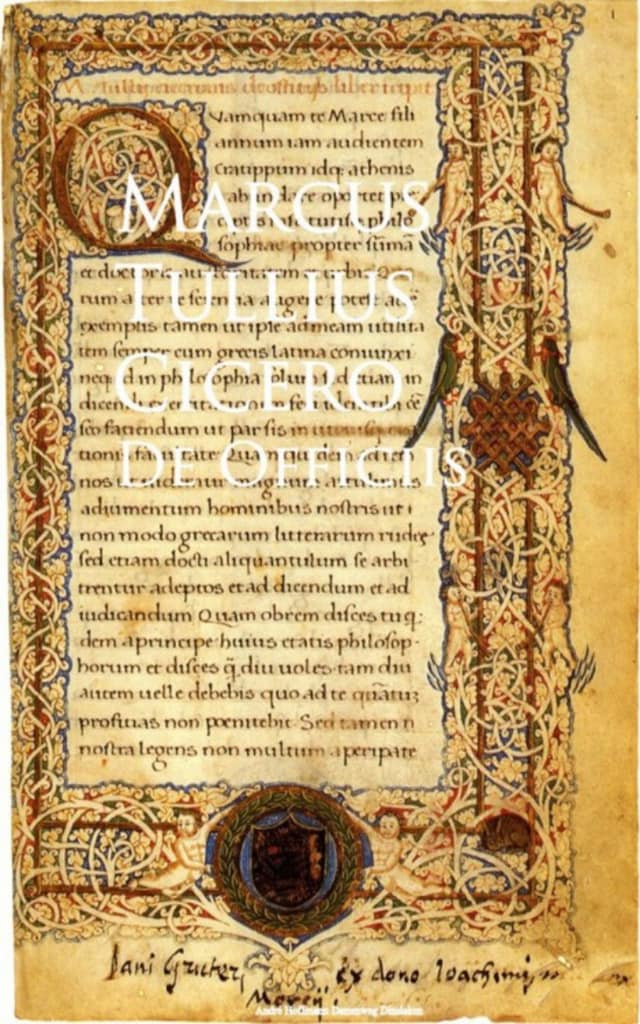 Marcus
Tullius
Cicero
De Officiis
1
M. Tullii ciceronis de officiis liber incipit
Quamquam te Marce fili
annum iam audientem
Cratippum idq; athenis
abundare oportet
philo
sophiae propter sũmã
et doctoris auctoritatem et urbis
rum alter te scientia augere potest
exemplis tamen ut ipse ad meam utilita
tem semper cum grecis latina coniunxi
neq; id in philosophia solum sed etiam in
dicendi exercitatione feci idem tibi cẽ
seo faciendum ut par sis in
tionis facultate Quam quidem ad rem
nos ut
adiumentum hominibus nostris ut
non modo grecarum litterarum
sed etiam docti aliquantulum se arbi
trentur adeptos et ad dicendum et ad
iudicandum Quam obrem disces tu q;
dem a principe huius etatis philosop-
horum et disces q̃ diu uoles tam diu
autem uelle debebis quo ad te
proficias non poenitebit Sed tamen
nostra legens non multum a peripate
Jani Gruteri ex dono Ioachimi
André Hoffmann Dammweg Dinslaken